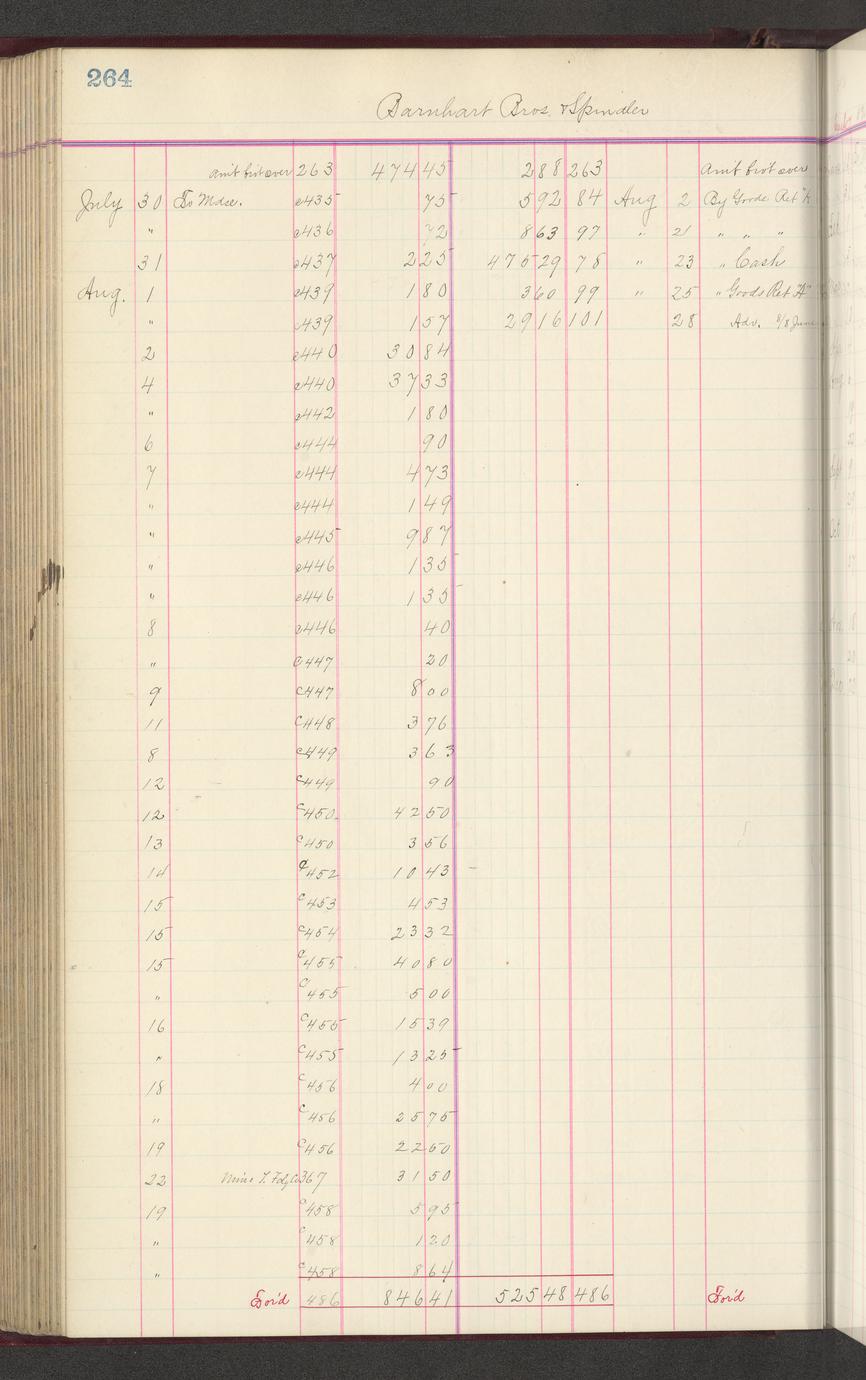 264
Barnhart Bros. & Spindler
Am't bro't over 263 474 45 2 88 263 Am't bro't over
July 30 To Mdse. c435 75 5 92 84 Aug 2 By Goods Ret'
" c436 72 8 63 97 " 21 " " "
31 c437 2 25 475 29 78 " 23 " Cash
Aug. 1 c439 1 80 3 60 99 " 25 " Goods Ret
" c439 1 57 29 16 101 28 Adv. June
2 c440 30 84
4 c440 37 33
" c442 1 80
6 c444 90
7 c444 4 73
" c444 1 49
" c445 9 87
" c446 1 35
" c446 1 35
8 c446 40
" c447 20
9 c447 8 00
11 c448 3 76
8 c449 3 63
12 c449 90
12 c450 42 50
13 c450 3 56
14 c452 10 43
15 c453 4 53
15 c454 23 32
15 c455 40 80
" c455 5 00
16 c455 15 39
" c455 13 25
18 c456 4 00
" c456 25 75
19 c456 22 50
22 367 31 50
19 c458 5 95
" c458 1 20
" c458 8 64
For'd 486 846 41 525 48 486 For'd